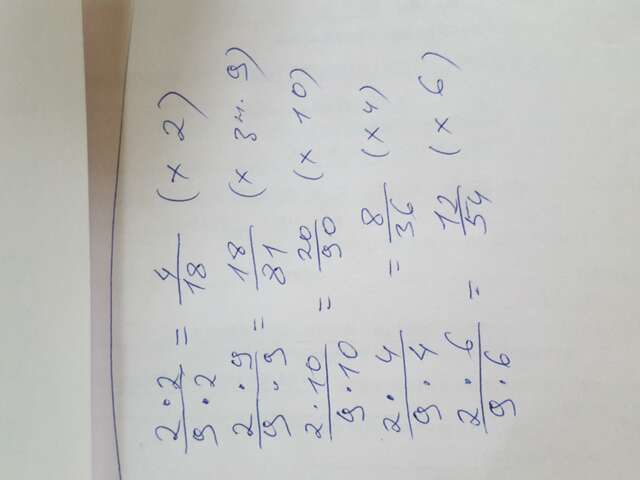 2·2/9·2 = 4/18 (x 2)
2·9/9·9 = 18/81 (x 3ч. 9)
2·10/9·10 = 20/90 (x 10)
2·4/9·4 = 8/36 (x 4)
2·6/9·6 = 12/54 (x 6)